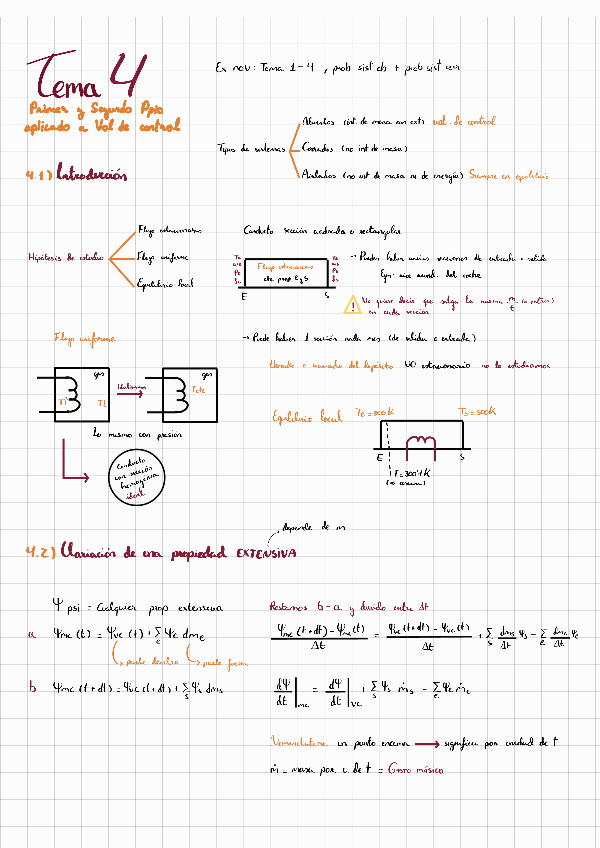 Tema 4
Primer y Segundo Ppio
aplicado a Vol de control
Ex nov: Tema 1-4, prob sist ab + prob sist cerr
Tipos de sistemas
Abiertos (int. de masa con ext) vol. de control
Cerrados (no int de masa)
Aislados (no int de masa ni de energía) Siempre en equilibrio
4.1) Introducción
Hipótesis de estudio
Flujo estacionario
Flujo uniforme
Equilibrio local
Conducto sección cuadrada o rectangular
Flujo estacionario
cte prop E y S
E S
→ Pueden haber varias secciones de entrada o salida
Ejm: aire acond. del coche
! No quiere decir que salga la misma m/t
en cada sección
Flujo uniforme
→ Puede haber 1 sección nada mas (de salida o entrada)
Llenado o vaciado del depósito NO estacionario no lo estudiamos
gas
Ti
Ti
Uniforme
gas
T cte
Lo mismo con presion
Conducto
con sección
homogénea
ideal
Equilibrio local Te = 300K Ts = 500K
E S
4.2) Variación de una propiedad EXTENSIVA
depende de m
Ψ psi = Cualquier prop extensiva
a Ψmc (t) = Ψvc (t) + Σe Ψe dme
parte dentro
parte fuera
b Ψmc (t+dt) = Ψvc (t+dt) + Σs Ψs dms
Restamos b-a y divido entre Δt
(Ψmc (t+dt) - Ψmc (t))/Δt = (Ψvc (t+dt) - Ψvc (t))/Δt + Σs dms/Δt Ψs - Σe dme/Δt Ψe
dΨ/dt |mc = dΨ/dt |vc + Σs Ψs ṁs - Σe Ψe ṁe
Nomenclatura un punto encima → significa por unidad de t
ṁ = masa por u. de t = Gasto másico